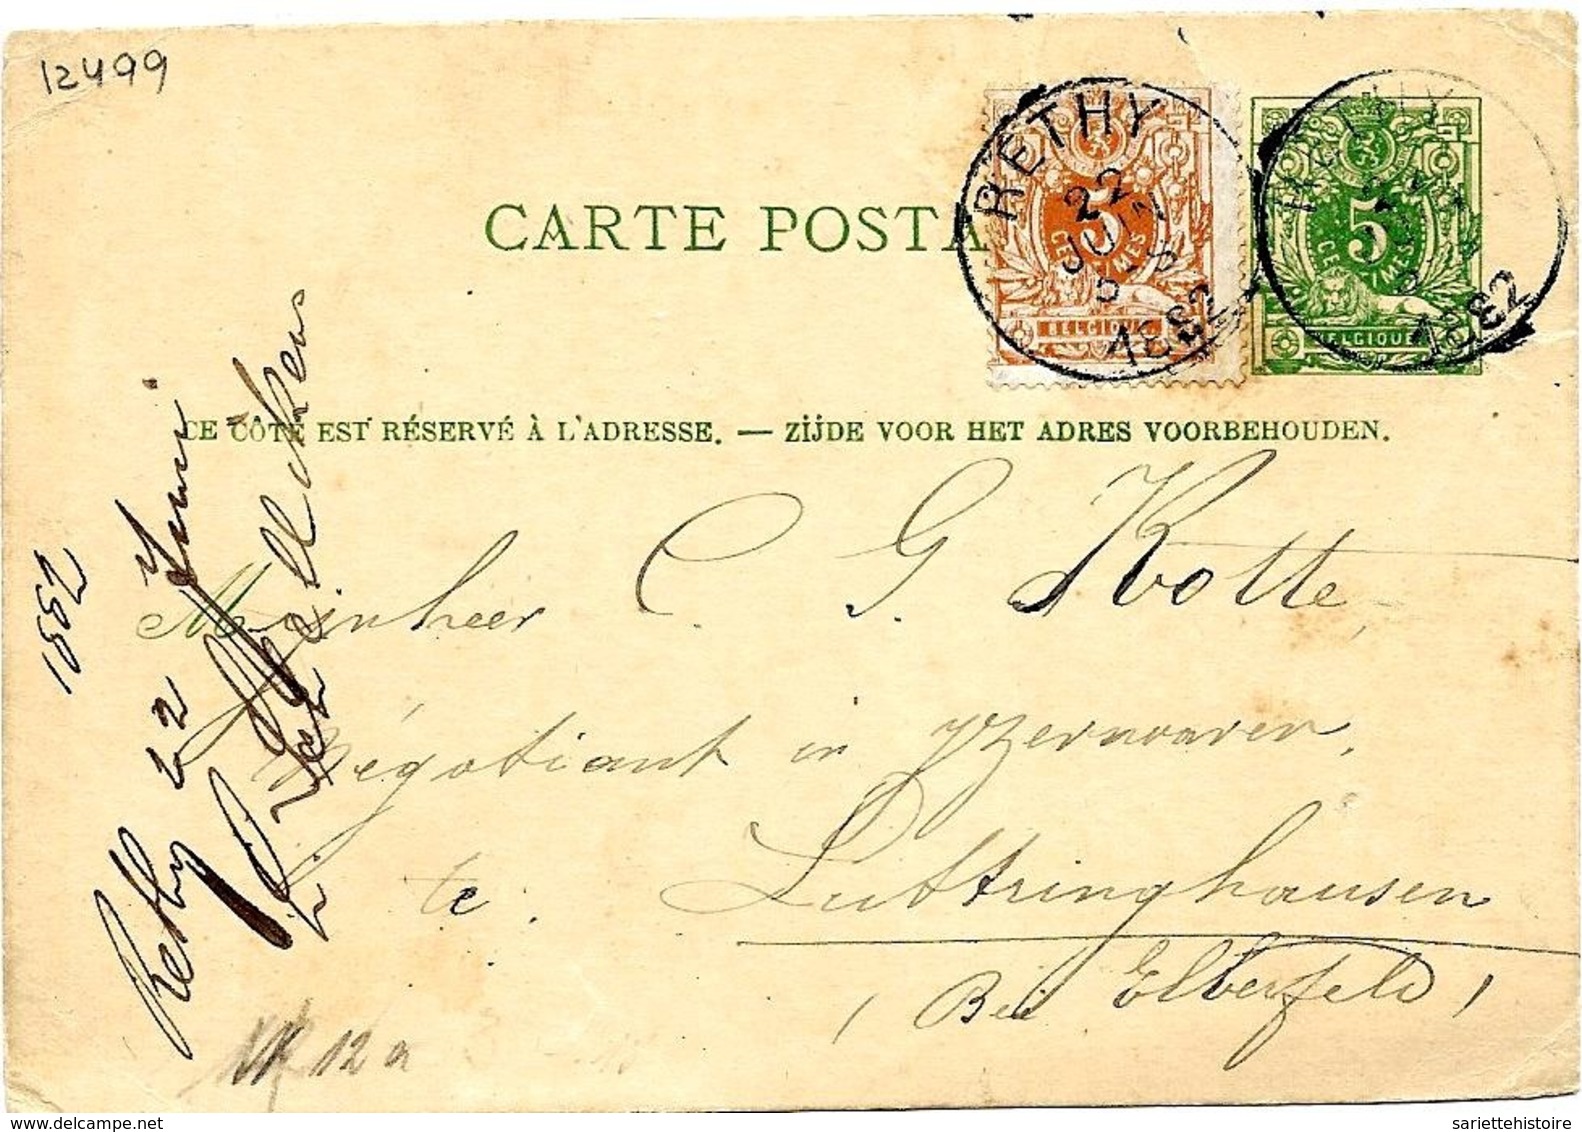 12499
CARTE POSTA
RETHY
22
JUIN
1882
5
CE MES
BELGIQUE
RETHY
1882
5
CE MES
BELGIQUE
CE CÔTÉ EST RÉSERVÉ À L'ADRESSE. — ZIJDE VOOR HET ADRES VOORBEHOUDEN.
Mijnheer C G Kotte,
Négotiant in Yzerwaren,
te Luttringhausen
(Bei Elberfeld)
Rethy 22 Juni
1882
12 a
sariettehistoire